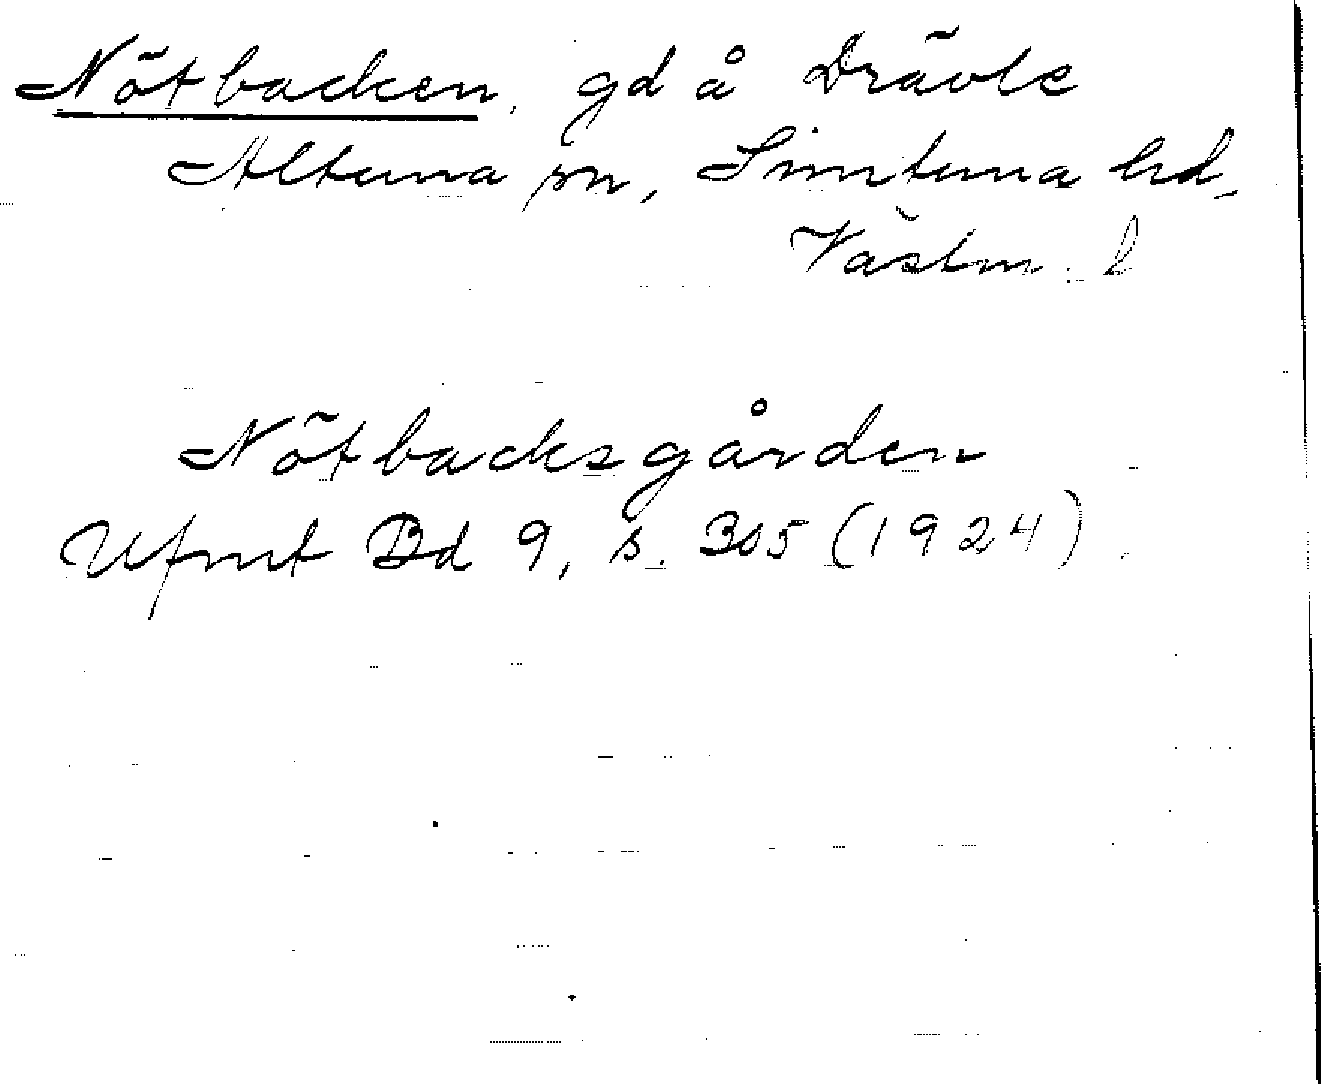 Nötbacken, gd å Drävle
Altuna sn, Simtuna hd,
Västm. l
Nötbacksgården
Ufmt Bd 9, s. 305 (1924).